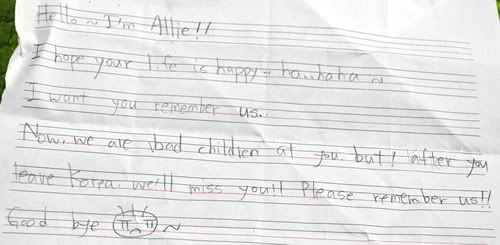 Hello ~ I'm Allie!!
I hope your life is happy~ ho..haha ~
I want you remember us..
Now, we are bad children at you. but! after you
leave Korea. we'll miss you!! Please remember us!!
Good bye ~